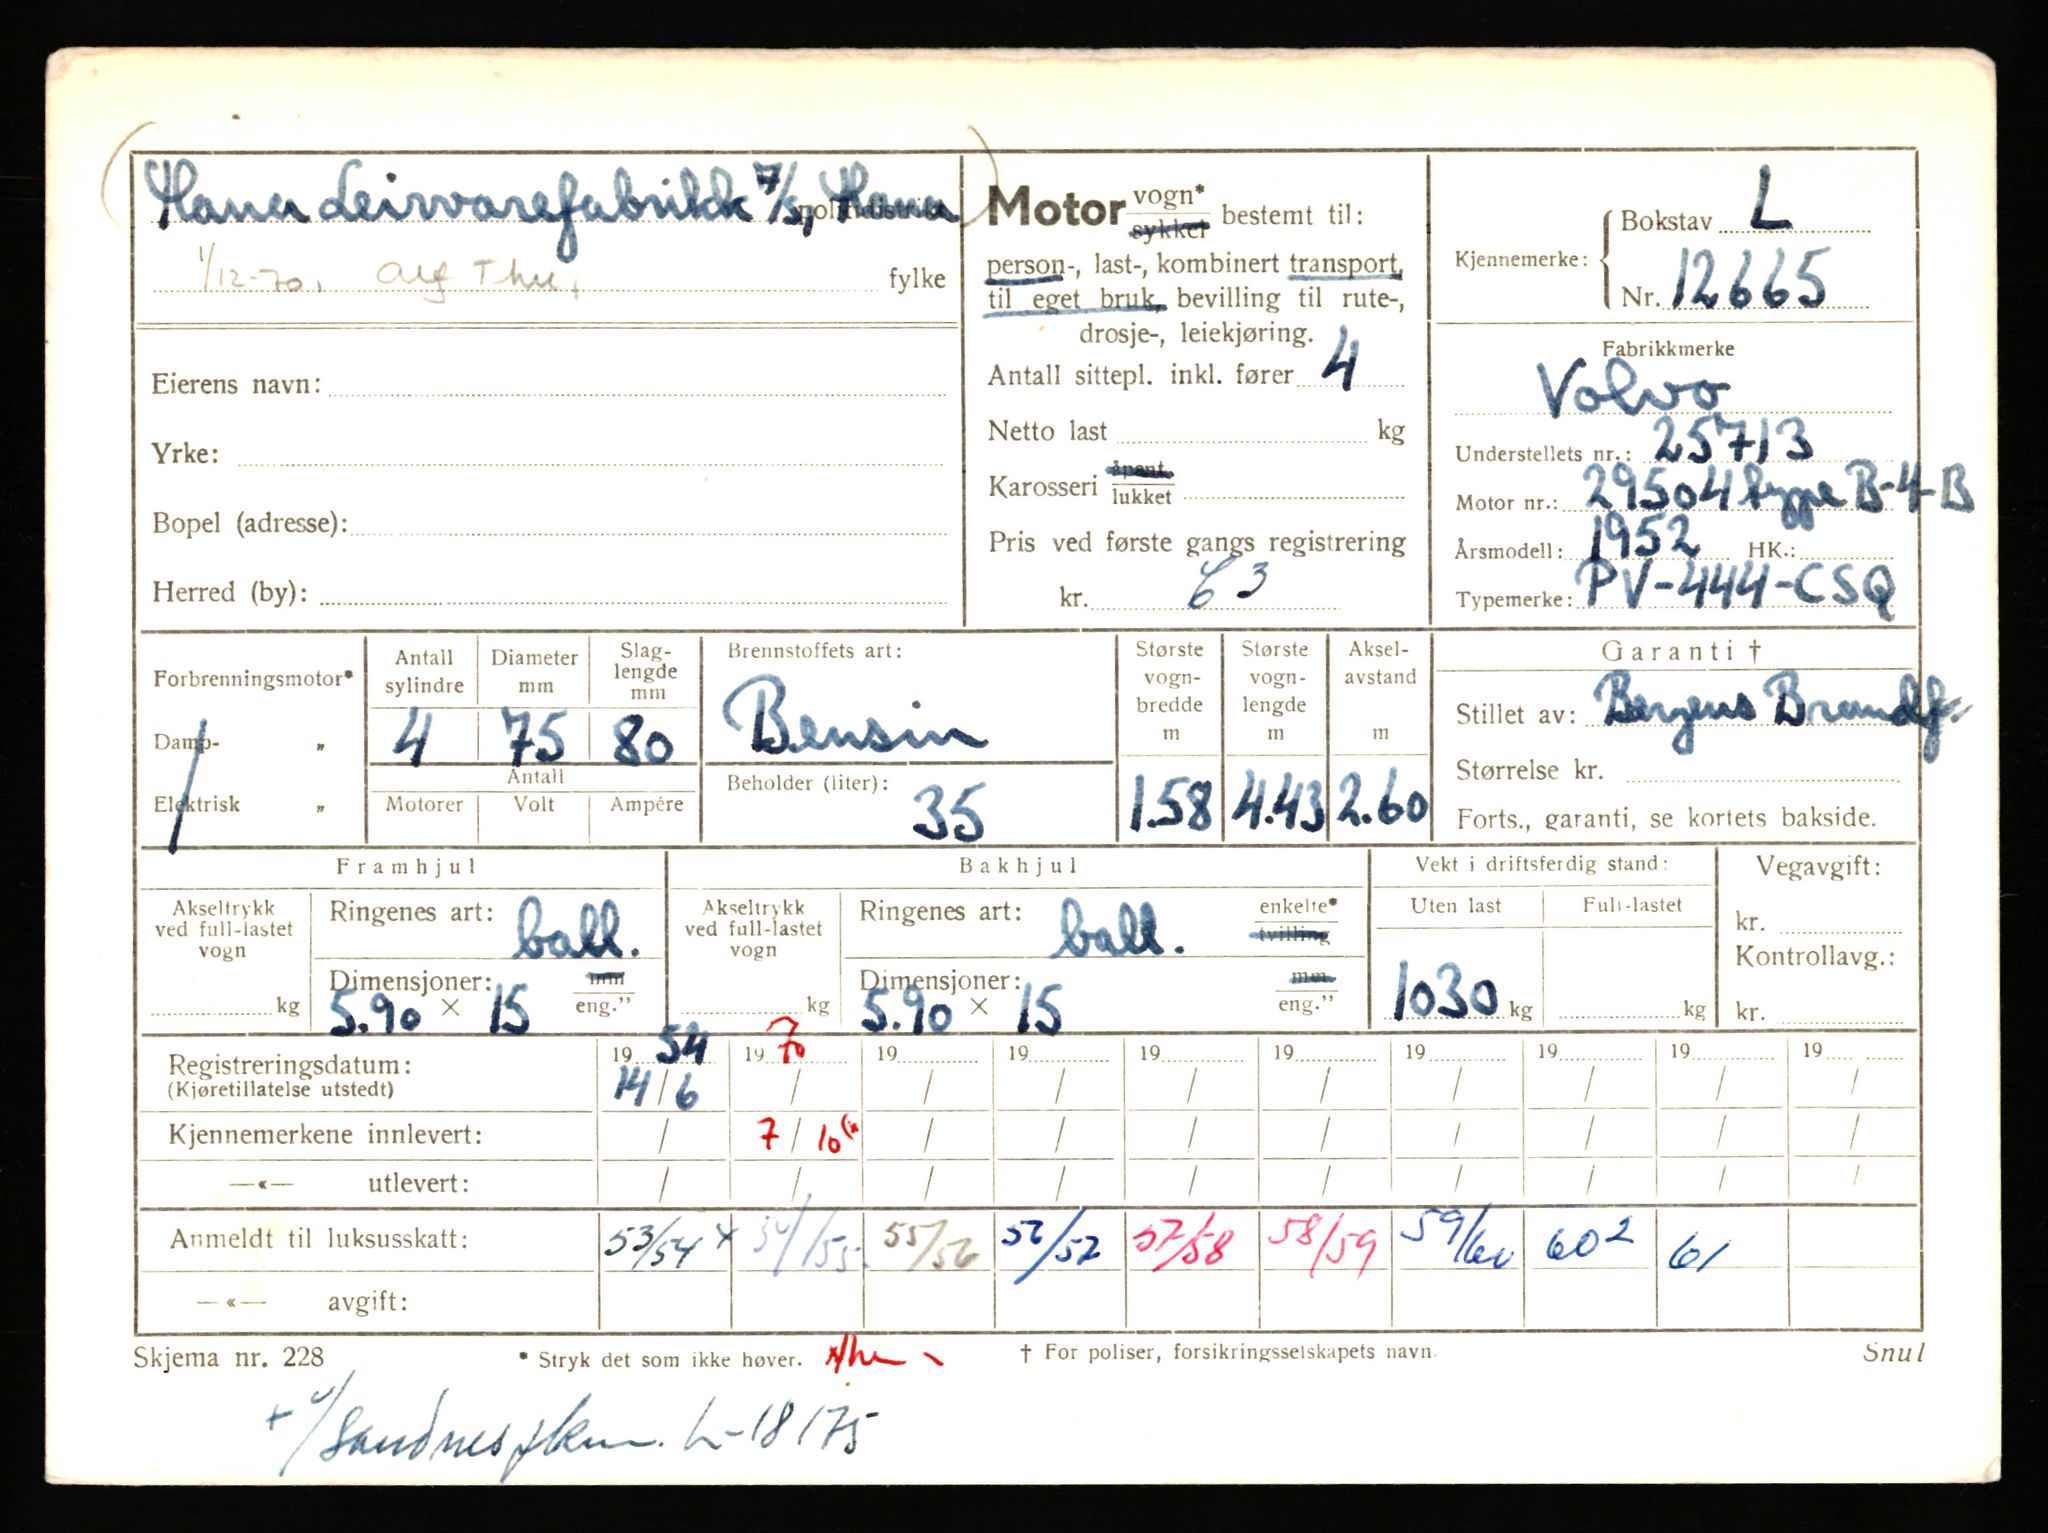 Hana Leirvarefabrikk A/S, Hana politidistrikt
1/12-70, Alf Thu, fylke
Eierens navn:
Yrke:
Bopel (adresse):
Herred (by):
Motor vogn* sykkel bestemt til:
person-, last-, kombinert transport,
til eget bruk, bevilling til rute-,
drosje-, leiekjøring.
Antall sittepl. inkl. fører 4
Netto last kg
Karosseri åpent lukket
Pris ved første gangs registrering
kr. 63
Kjennemerke: Bokstav L
Nr. 12665
Fabrikkmerke
Volvo
Understellets nr.: 25713
Motor nr.: 29504 type B-4-B
Årsmodell: 1952 HK.:
Typemerke: PV-444-CSQ
Forbrenningsmotor*
Damp- „
Elektrisk „
Antall sylindre
4
Diameter mm
75
Slaglengde mm
80
Antall
Motorer Volt Ampére
Brennstoffets art:
Bensin
Beholder (liter):
35
Største vognbredde m
1.58
Største vognlengde m
4.43
Akselavstand m
2.60
Garanti †
Stillet av: Bergens Brandf.
Størrelse kr.
Forts., garanti, se kortets bakside.
Framhjul
Akseltrykk ved full-lastet vogn
kg
Ringenes art: ball.
Dimensjoner: mm
5.90 × 15 eng.”
Bakhjul
Akseltrykk ved full-lastet vogn
kg
Ringenes art: ball. enkelte* tvilling
Dimensjoner: mm
5.90 × 15 eng.”
Vekt i driftsferdig stand:
Uten last Full-lastet
1030 kg kg
Vegavgift:
kr.
Kontrollavg.:
kr.
Registreringsdatum: 19 54 19 70 19 19 19 19 19 19 19 19
(Kjøretillatelse utstedt) 14/6 / / / / / / / / /
Kjennemerkene innlevert: / 7/10 / / / / / / / /
—«— utlevert: / / / / / / / / / /
Anmeldt til luksusskatt: 53/54 x 54/55 55/56 56/57 57/58 58/59 59/60 60 2 61
—«— avgift:
Skjema nr. 228 * Stryk det som ikke høver. † For poliser, forsikringsselskapets navn. Snul
L-18175